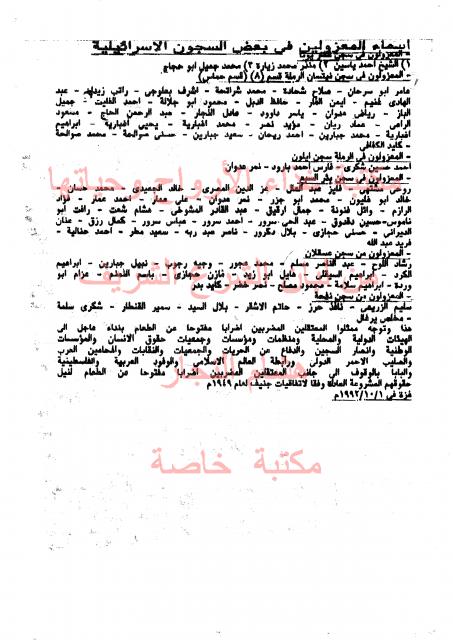 اسماء المعزولين في بعض السجون الاسرائيلية
- المعزولون في سجن
١) الشيخ احمد ياسين ٢) منذر محمد زيارة ٣) محمد جميل ابو حجاج
- المعزولون في سجن نيتسان الرملة قسم (٨) (قسم حماس)
عامر ابو سرحان - صلاح شحادة - محمد شراتحة - اشرف بعلوجي - راتب زيدان - عبد
الهادي غنيم - ايمن الفار - حافظ الدبل - محمود ابو جلالة - احمد الفليت - جميل
الباز - رياض عدوان - ياسر داوود - عادل النجار - عبد الرحمن الحاج - مسعود
الراعي - عماد ريان - مؤيد نصر - محمد اغبارية - يحيى اغبارية - ابراهيم
اغبارية - محمد جبارين - احمد ريحان - سعيد جبارين - حسني صوالحة - محمد صوالحة
- كايد الكفافي
- المعزولون في الرملة سجن ايلون
احمد حسين شكري - فارس احمد بارود - نمر عدوان
- المعزولون في سجن بئر السبع
روحي مشتهى - فايز عبد العال - عز الدين المصري - خالد الجعيدي - محمد حسان -
خالد ابو غليون - محمد ابو جزر - نمر عدوان - علي عمار - احمد عمار - فؤاد
الرازم - وائل فنونة - جمال ارقيق - عبد القادر المشوخي - هشام شعت - رافت ابو
ناموس - حسين دقدوق - عبد الحي سرور - احمد سرور - عباس سرور - كمال رزق - عنان
الديراني - حسني حجازي - بلال دكرور - ناصر عبد ربه - سعيد مطر - احمد حنالية -
فريد عبد الله
- المعزولون من سجن عسقلان
رشاد اللوح - عبد الناصر مسلم - محمد عجور - وجيه رجوب - نبيل جبارين - ابراهيم
الكرد - ابراهيم السيقلي - فايل ابو زيد - فازن حجازي - باسم الخندقجي - عزام ابو
وردة - ابراهيم سلامة - محمود سلم - نمر خضر - كايد بدر
- المعزولون من سجن نفحة
سليم الزريعي - نافذ حرز - حاتم الاشقر - بلال السيد - سمير القنطار - شكري سلمة
- مخلص برغال
هذا وتوجه ممثلوا المعتقلين المضربين اضرابا مفتوحا عن الطعام بنداء عاجل الى
الهيئات الدولية والمحلية ومنظمات ومؤسسات وجمعيات حقوق الانسان والمؤسسات
الوطنية وانصار السجين والدفاع عن الحريات والجمعيات والنقابات والمحامين العرب
والصليب الاحمر الدولي ورابطة العالم الاسلامي والوفود العربية والفلسطينية
والبابا بالوقوف الى جانب المعتقلين المضربين اضرابا مفتوحا عن الطعام لنيل
حقوقهم المشروعة العادلة وفقا لاتفاقيات جنيف لعام ١٩٤٩م
غزة في ١٩٩٢/١٠/١م
مكتبة غذاء الأرواح وحياتها
هشام النجار
مكتبة خاصة